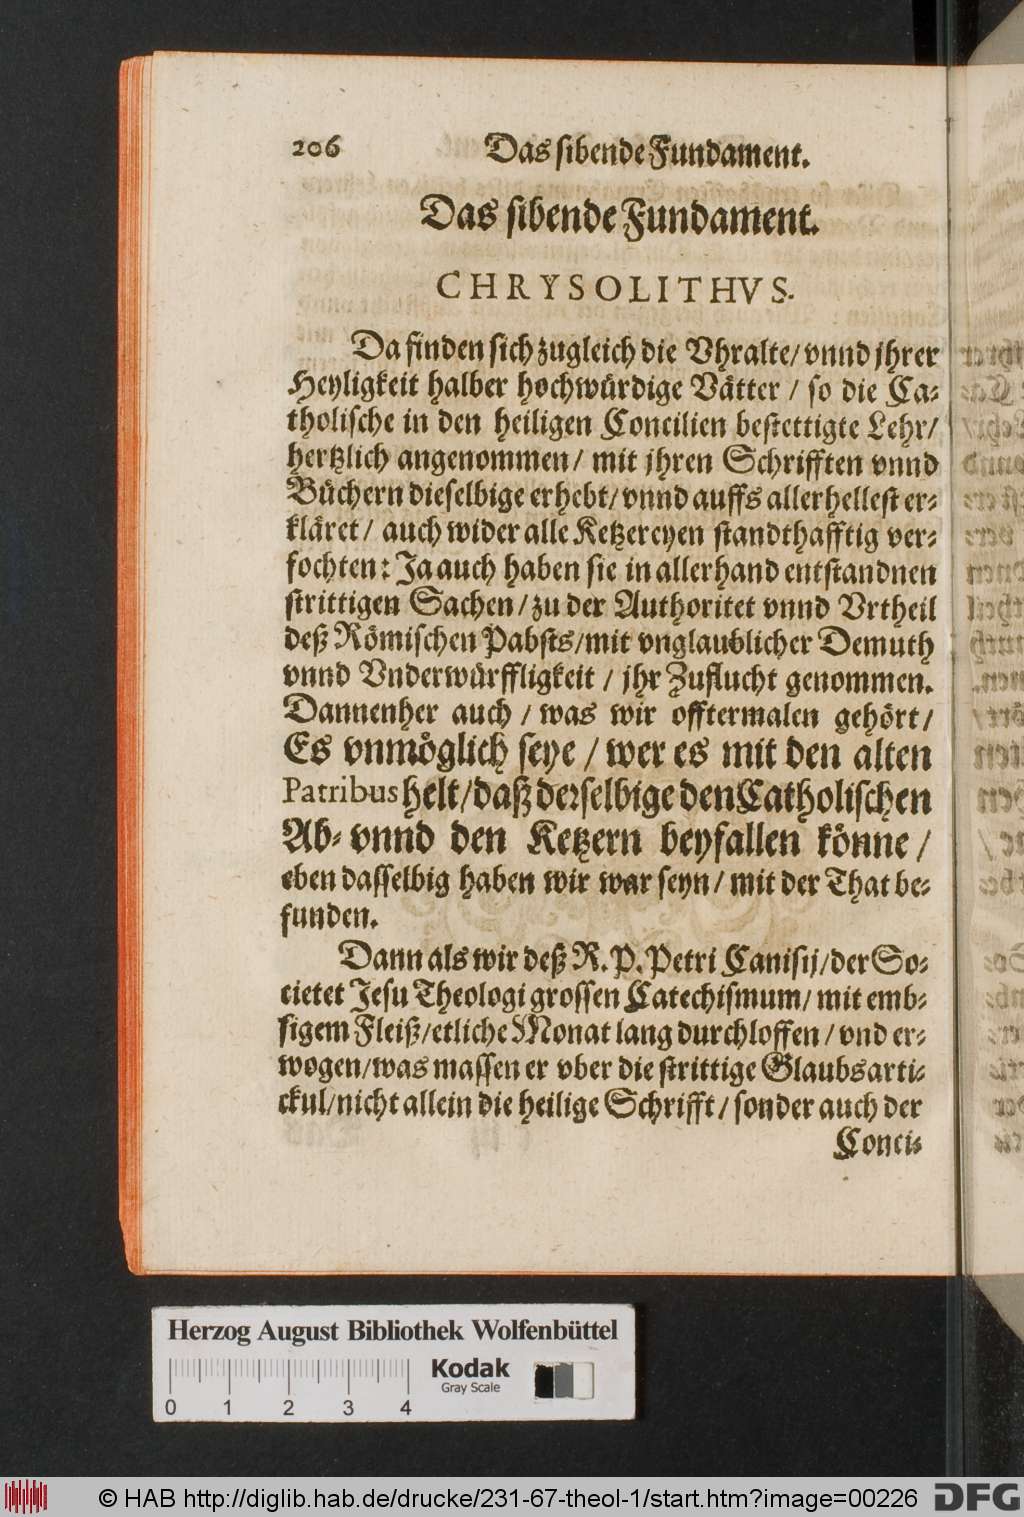 206 Das sibende Fundament.
Das sibende Fundament.
CHRYSOLITHVS.
Da finden sich zugleich die Vhralte/ vnnd jhrer
Heyligkeit halber hochwürdige Vätter / so die Ca-
tholische in den heiligen Concilien bestettigte Lehr/
hertzlich angenommen/ mit jhren Schrifften vnnd
Büchern dieselbige erhebt/ vnnd auffs allerhellest er-
kläret / auch wider alle Ketzereyen standthafftig ver-
fochten: Ja auch haben sie in allerhand entstandnen
strittigen Sachen / zu der Authoritet vnnd Vrtheil
deß Römischen Pabsts/mit vnglaublicher Demuth
vnnd Vnderwürffligkeit / jhr Zuflucht genommen.
Dannenher auch / was wir offtermalen gehört/
Es vnmöglich seye / wer es mit den alten
Patribus helt/daß derselbige den Catholischen
Ab- vnnd den Ketzern beyfallen könne /
eben dasselbig haben wir war seyn / mit der That be-
funden.
Dann als wir deß R. P. Petri Canisij/der So-
cietet Jesu Theologi grossen Catechismum/ mit emb-
sigem Fleiß/etliche Monat lang durchloffen / vnd er-
wogen/was massen er vber die strittige Glaubsarti-
ckul/nicht allein die heilige Schrifft / sonder auch der
Conci-
Herzog August Bibliothek Wolfenbüttel
Kodak
Gray Scale
0 1 2 3 4
© HAB http://diglib.hab.de/drucke/231-67-theol-1/start.htm?image=00226 DFG